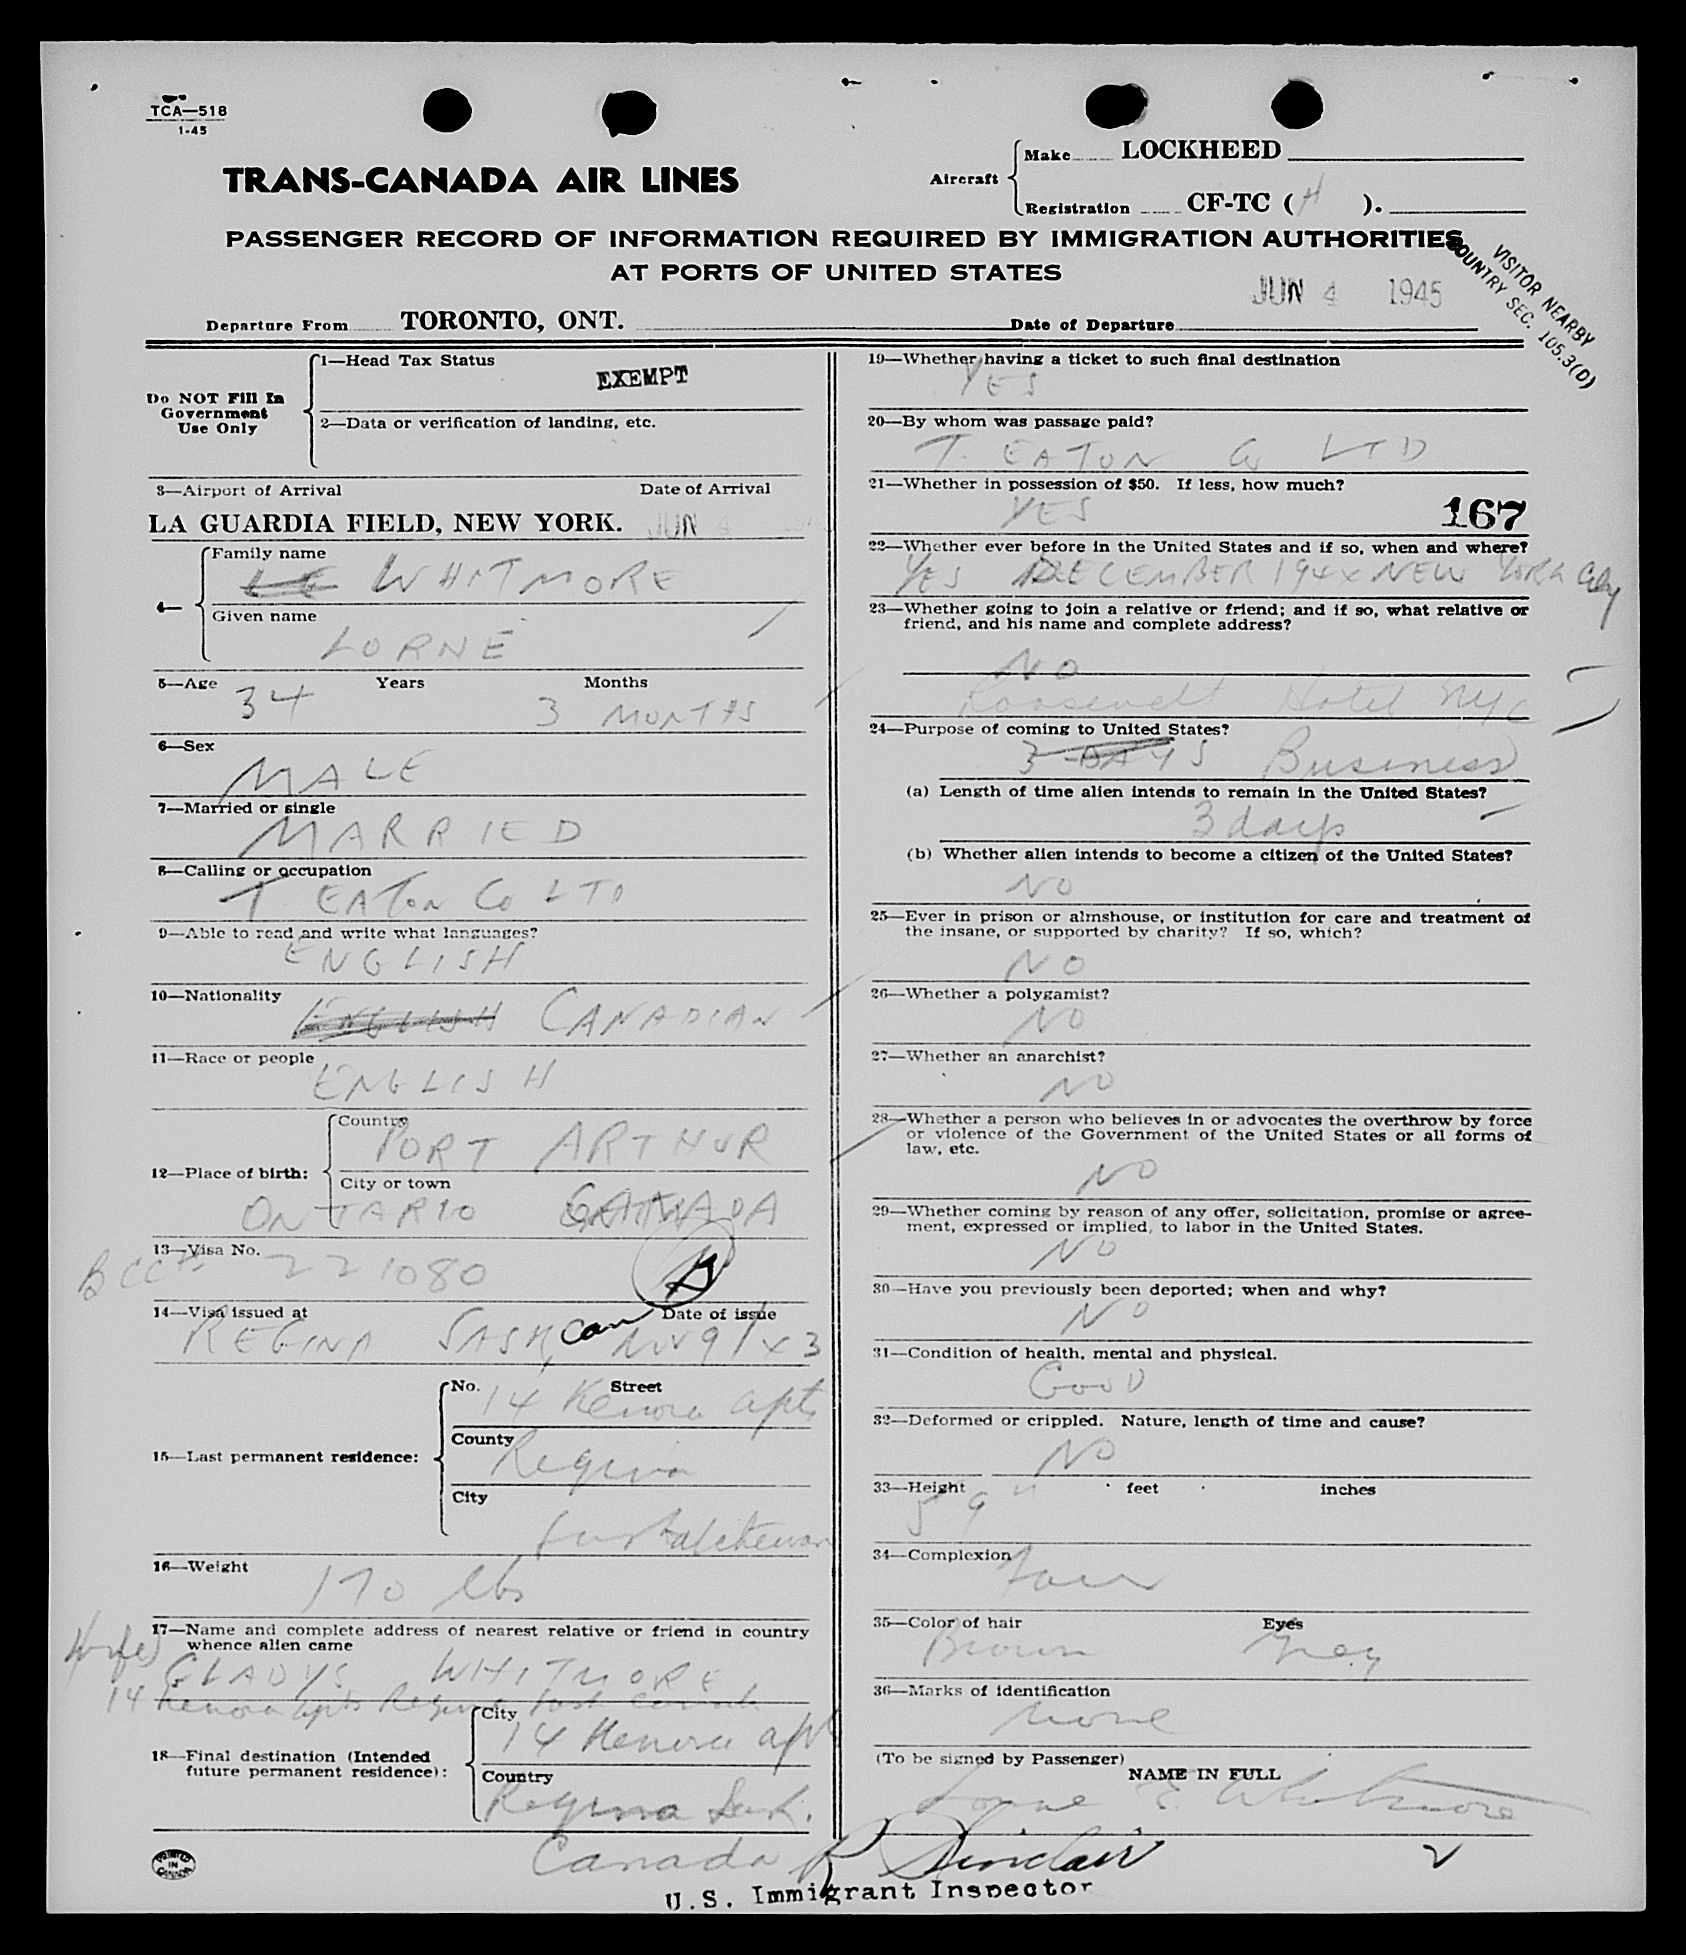 TCA—518
1-45
TRANS-CANADA AIR LINES
Aircraft
Make LOCKHEED
Registration CF-TC ( H ).
PASSENGER RECORD OF INFORMATION REQUIRED BY IMMIGRATION AUTHORITIES
AT PORTS OF UNITED STATES
VISITOR NEARBY
COUNTRY SEC. 105.3(D)
JUN 4 1945
Departure From TORONTO, ONT. Date of Departure
Do NOT Fill In
Government
Use Only
1—Head Tax Status
EXEMPT
2—Data or verification of landing, etc.
3—Airport of Arrival Date of Arrival
LA GUARDIA FIELD, NEW YORK. JUN 4
4— Family name
WHITMORE
Given name
LORNE
5—Age 34 Years 3 MONTHS Months
6—Sex
MALE
7—Married or single
MARRIED
8—Calling or occupation
T EATON CO LTD
9—Able to read and write what languages?
ENGLISH
10—Nationality
ENGLISH CANADIAN
11—Race or people
ENGLISH
12—Place of birth:
Country
PORT ARTHUR
City or town
ONTARIO CANADA
13—Visa No.
BCC 221080
14—Visa issued at Date of issue
REGINA SASK, Can Nov 9 / x3
15—Last permanent residence:
No. Street
14 Kenora apts
County
Regina
City
Saskatchewan
16—Weight
170 lbs
17—Name and complete address of nearest relative or friend in country
whence alien came
Wife)
GLADYS WHITMORE
14 Kenora apts Regina Sask Canada
18—Final destination (Intended
future permanent residence):
City
14 Kenora apt
Country
Regina Sask.
Canada
PRINTED
IN
CANADA
19—Whether having a ticket to such final destination
YES
20—By whom was passage paid?
T. EATON Co LTD
21—Whether in possession of $50. If less, how much?
YES
167
22—Whether ever before in the United States and if so, when and where?
YES DECEMBER 194x NEW YORK City
23—Whether going to join a relative or friend; and if so, what relative or
friend, and his name and complete address?
NO
Roosevelt Hotel NYC
24—Purpose of coming to United States?
3 DAYS Business
(a) Length of time alien intends to remain in the United States?
3 days
(b) Whether alien intends to become a citizen of the United States?
NO
25—Ever in prison or almshouse, or institution for care and treatment of
the insane, or supported by charity? If so, which?
NO
26—Whether a polygamist?
NO
27—Whether an anarchist?
NO
28—Whether a person who believes in or advocates the overthrow by force
or violence of the Government of the United States or all forms of
law, etc.
NO
29—Whether coming by reason of any offer, solicitation, promise or agree-
ment, expressed or implied, to labor in the United States.
NO
30—Have you previously been deported; when and why?
NO
31—Condition of health, mental and physical.
GOOD
32—Deformed or crippled. Nature, length of time and cause?
NO
33—Height feet inches
5 9"
34—Complexion
Fair
35—Color of hair Eyes
Brown Grey
36—Marks of identification
None
(To be signed by Passenger)
NAME IN FULL
Lorne E Whitmore
R Sinclair
U.S. Immigrant Inspector